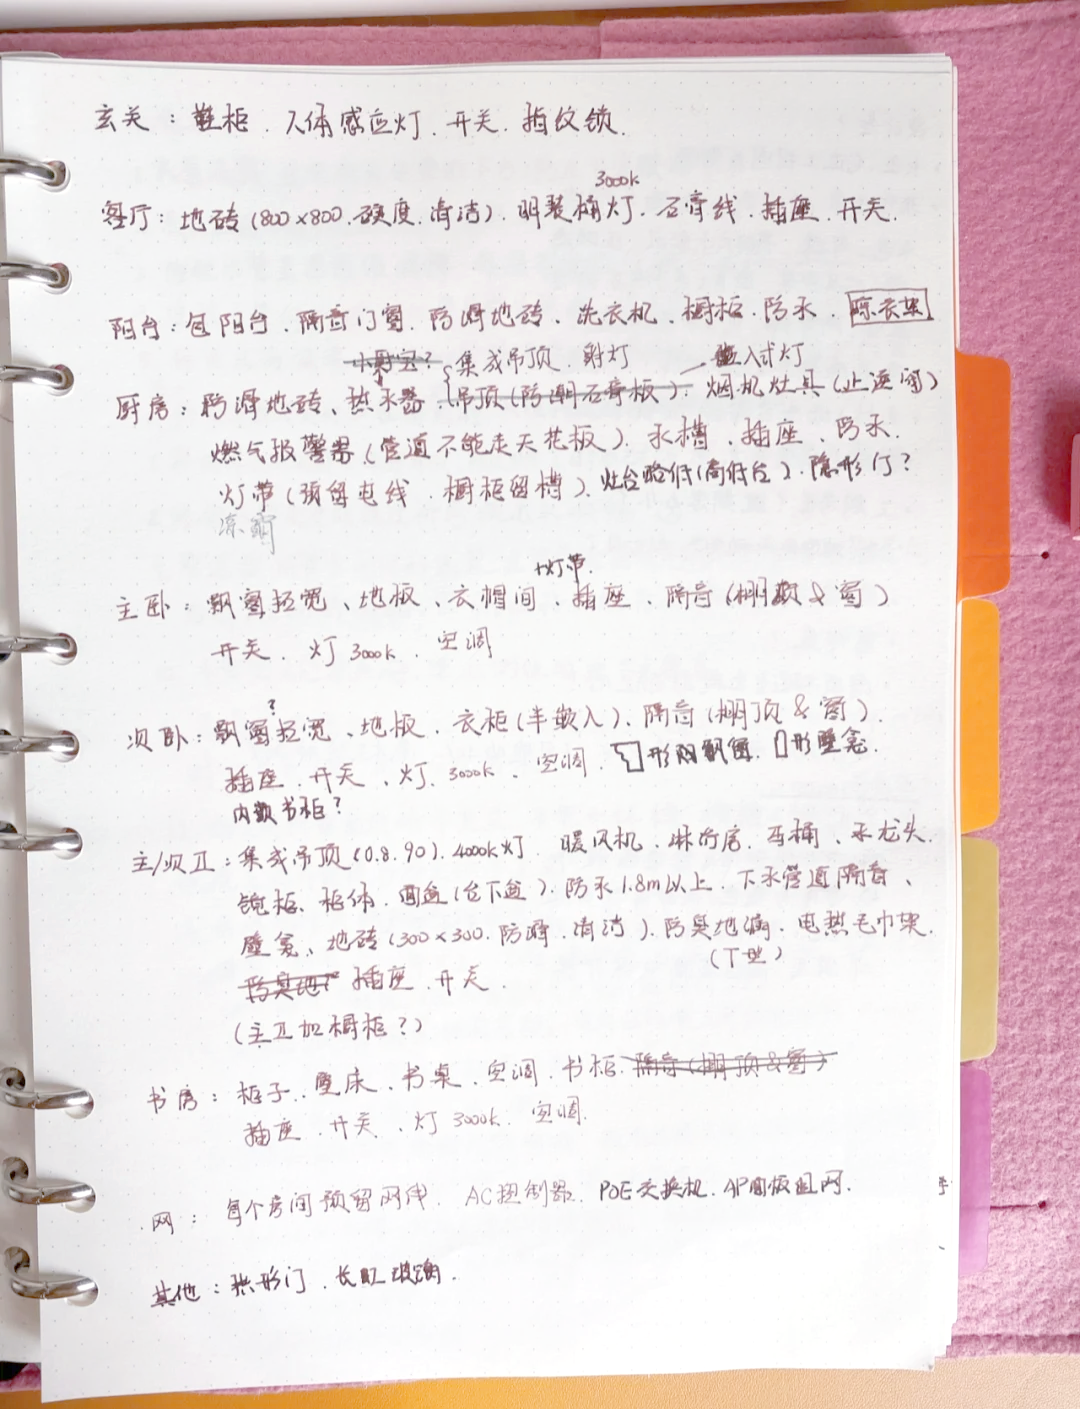 玄关：鞋柜．人体感应灯．开关．指纹锁．
3000k
客厅：地砖(800×800．硬度．清洁)．明装桶灯．石膏线．插座．开关．
阳台：包阳台．隔音门窗．防滑地砖、洗衣机、橱柜．防水．晾衣架
小厨宝？集成吊顶．射灯 嵌入式灯
厨房：防滑地砖、热水器．吊顶(防潮石膏板)．烟机灶具(止逆阀)
燃气报警器(管道不能走天花板)．水槽、插座、防水．
灯带(预留电线．橱柜留槽)．灶台略低(高低台)．隐形门？
+灯带．
主卧：飘窗拓宽、地板、衣帽间、插座．隔音(棚顶&窗)
开关．灯3000k．空调
？
次卧：飘窗拓宽、地板．衣柜(半嵌入)．隔音(棚顶&窗)．
插座．开关、灯．3000k、空调．形 飘窗．形壁龛．
内嵌书柜？
主/次卫：集成吊顶(0.8．90)．4000k灯．暖风机．淋浴房．马桶、水龙头．
镜柜、柜体．面盆(台下盆)．防水1.8m以上．下水管道隔音、
壁龛、地砖(300×300．防滑．清洁)．防臭地漏．电热毛巾架．
(T型)
防臭地 插座．开关．
(主卫加橱柜？)
书房：柜子．壁床、书桌．空调．书柜．隔音(棚顶&窗)
插座．开关、灯3000k．空调．
网：每个房间预留网线．AC控制器．POE交换机．AP面板组网．
其他：拱形门．长虹玻璃．